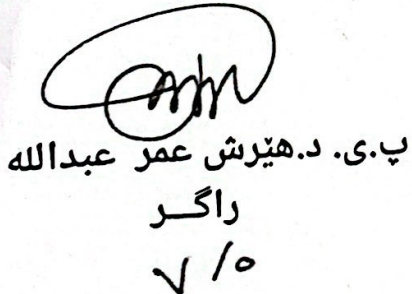 پ.ی. د.هێرش عمر عبدالله
راگــر
٧ /٥